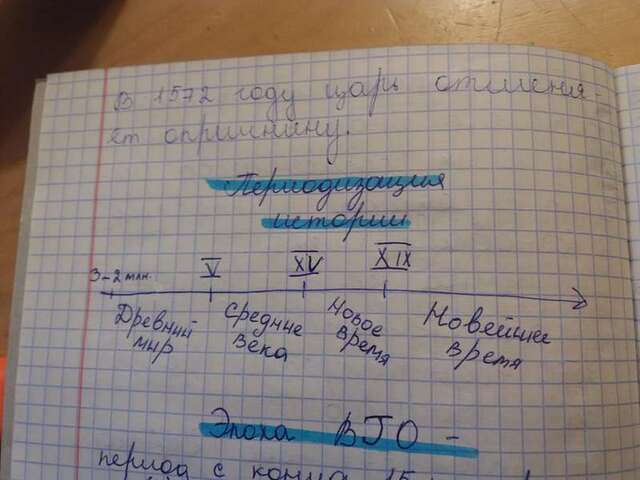 В 1572 году царь отменяя-
ет опричнину.
Периодизация
истории
3-2 млн.
V
XIV
XIX
Древний
мир
Средние
века
Новое
время
Новейшее
время
Эпоха ВГО -
период с конца 15